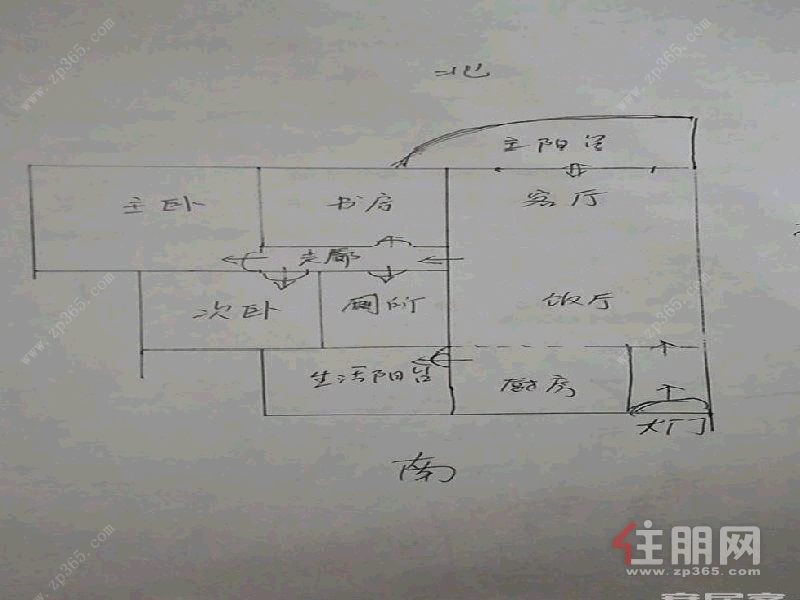 北
主阳台
主卧
书房
客厅
走廊
次卧
厕所
饭厅
生活阳台
厨房
大门
南
住朋网
www.zp365.com
www.zp365.com
www.zp365.com
www.zp365.com
www.zp365.com